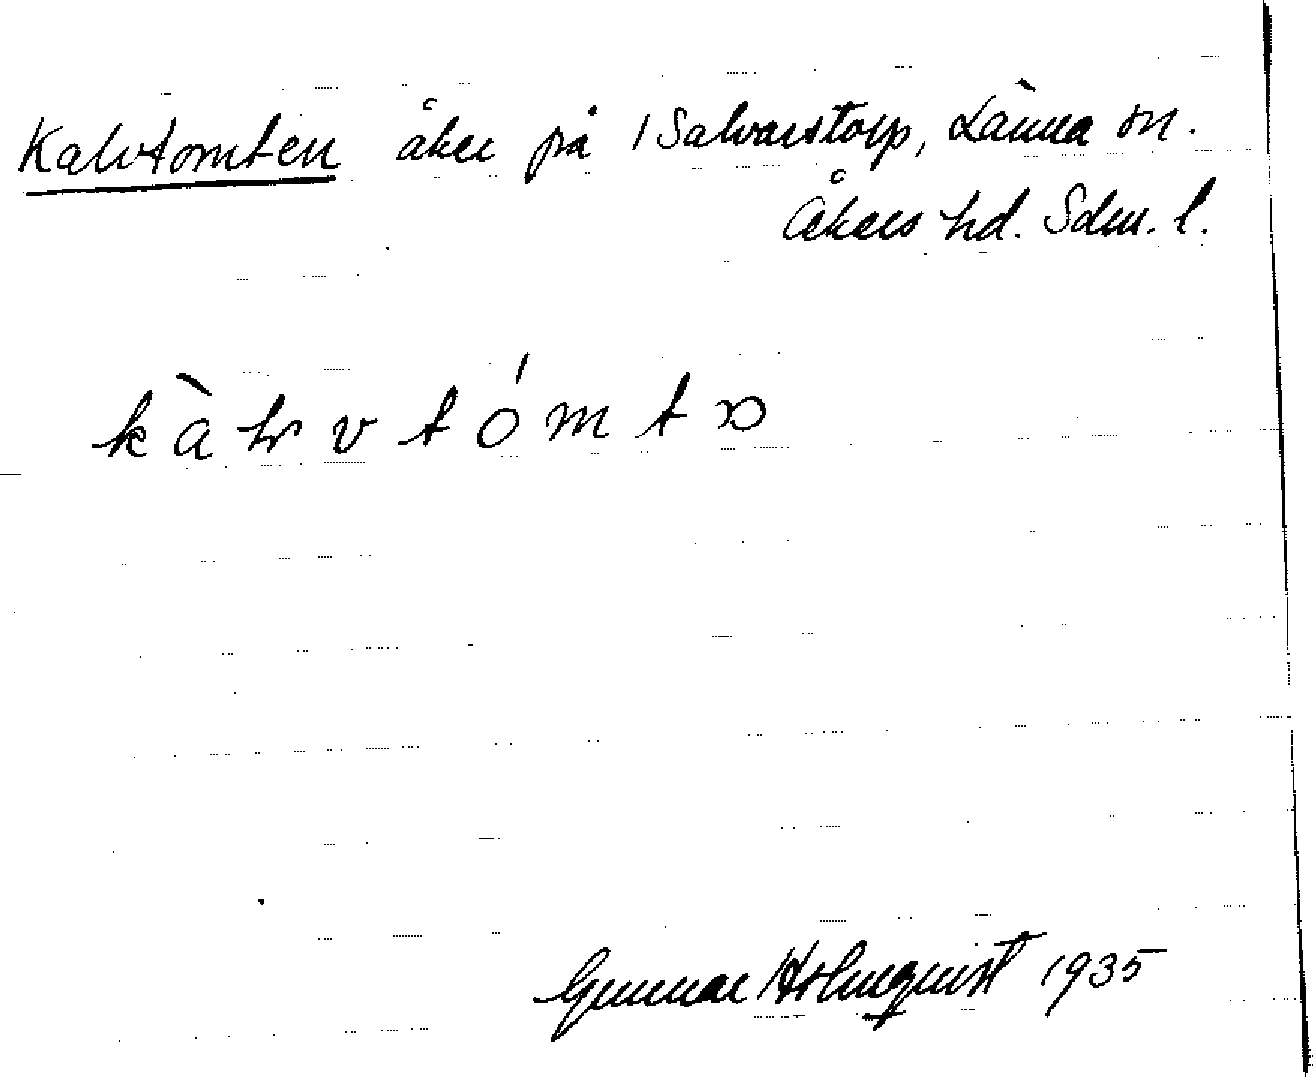 Kalvtomten åker på 1 Salvarstorp, Länna sn.
Åkers hd. Sdm. l.
Gunnar Holmquist 1935